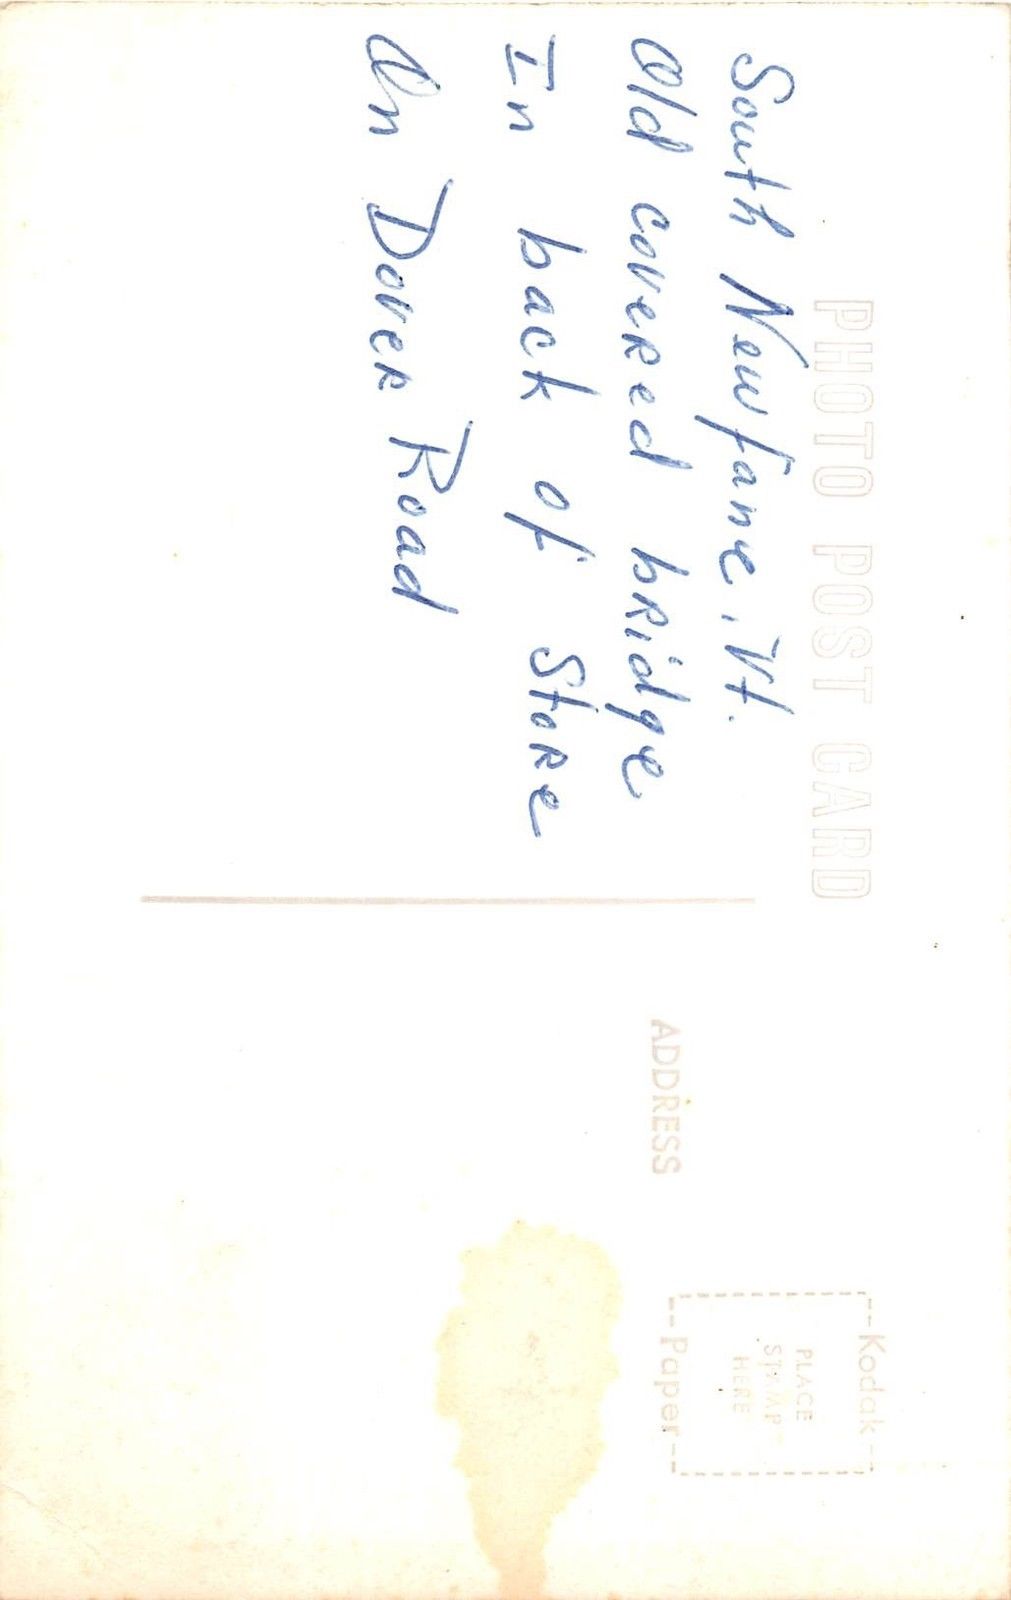 PHOTO POST CARD
South Newfane, Vt.
Old covered bridge
In back of Store
On Dover Road
ADDRESS
Kodak
PLACE
STAMP
HERE
Paper